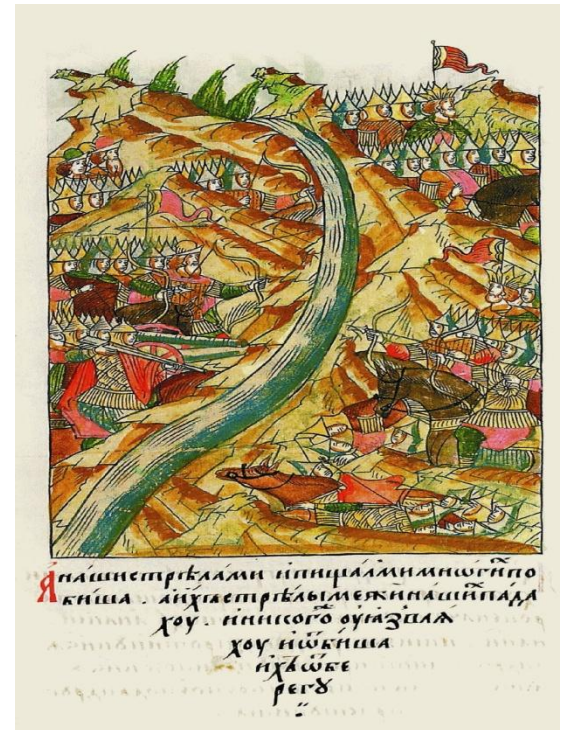 А нашистрѣлами ипищалмимнѡгꙵпо
биша . аихꙵстрѣлымежинашиⷯпада
хоу . нинисогѡ оуꙗзвлѧ
хоу иѿбиша
ихъѿбе
регꙋ